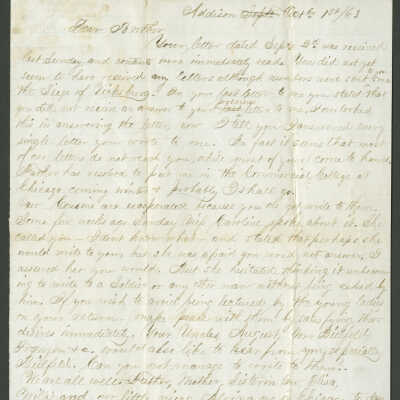 Addison Sept. Oct. 1st /63
Dear Brother,
Your letter dated Sept 2d was received
last Sunday and contents were immediately read. You did not yet
seem to have received any letters although numbers were sent since
the Siege of Vicksburg. In your last letter to me you stated that
you did not receive an answer to your previous last letter to me, I overlooked
this in answering the letter, now I tell you I answered every
single letter you wrote to me. In fact it seems that most
of our letters do not reach you, while most of yours come to hand.
Father has resolved to put me in the Commercial College at
Chicago coming winter & probably I shall go.
Our Cousins are exasperated because you do not write to them.
Some few weeks ago Sunday Miss Caroline spoke about it. She
called you — I dont know what — and stated that perhaps she
would write to you, but she was afraid you would not answer. I
assured her you would. But she hesitated thinking it unbecom-
ing to write to a Soldier or any other man without being asked by
him. If you wish to avoid being lectured by the young ladies
on your return, make peace with them by satisfying their
desires immediately. Your Uncles, August, Wm Bielfeldt
&c. would also like to hear from you, especially
Bielfeldt. Can you not manage to write to them.
We are all well. Father, Mother,
and our little niece is in Chicago to